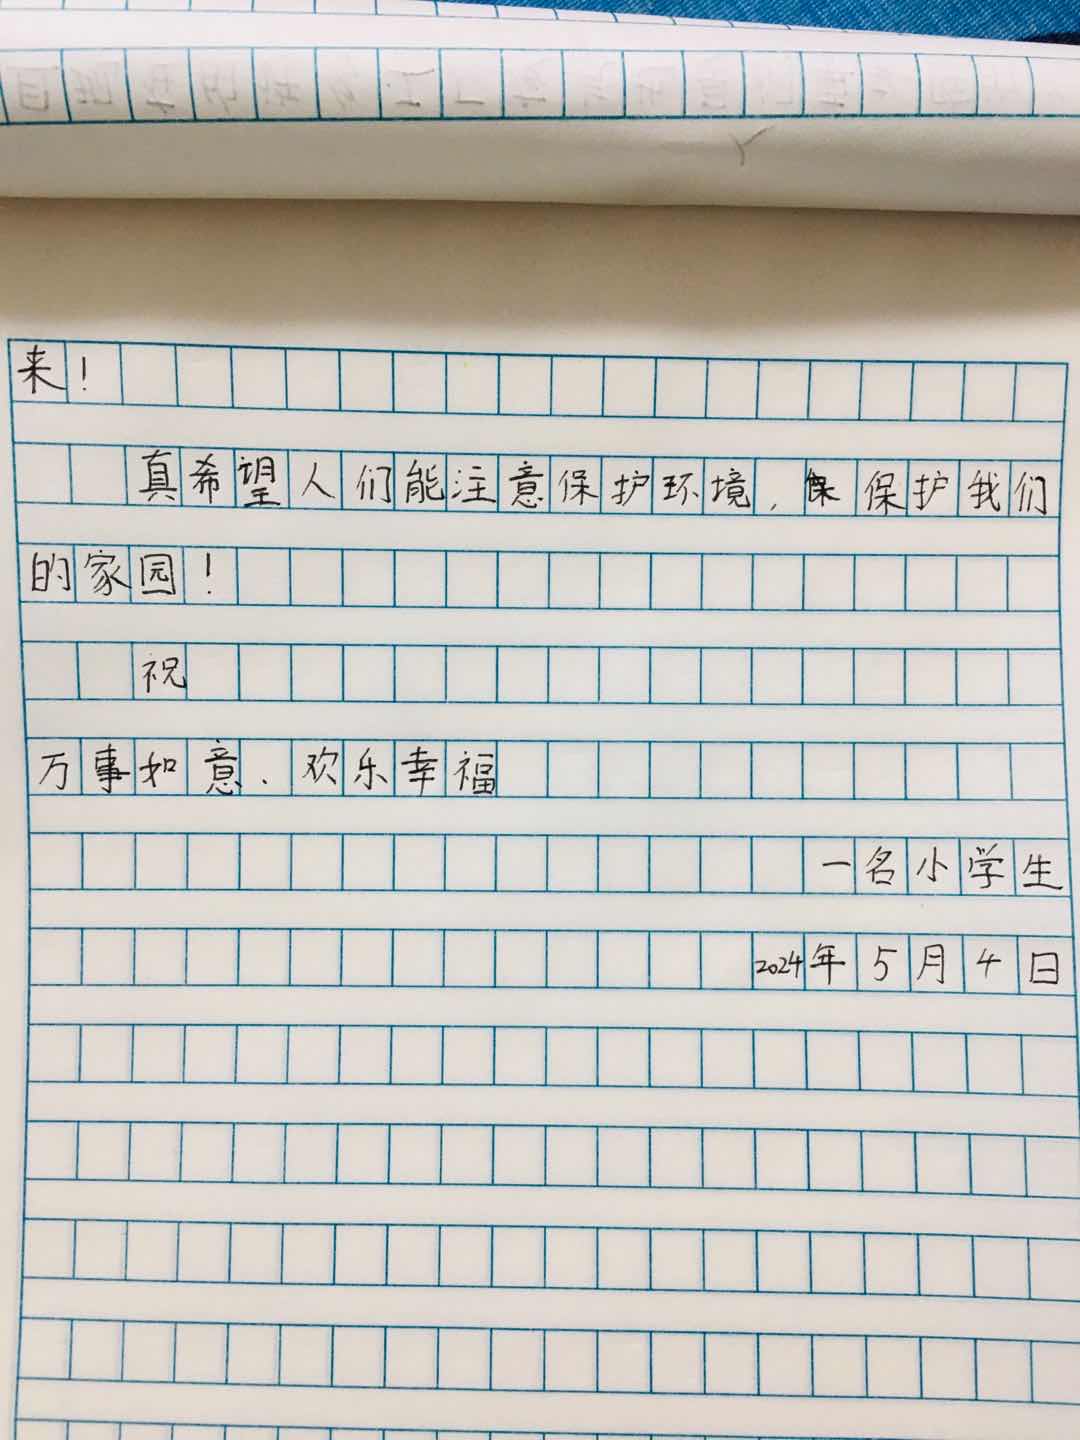 来！
真希望人们能注意保护环境，保保护我们
的家园！
祝
万事如意、欢乐幸福
一名小学生
2024年5月4日